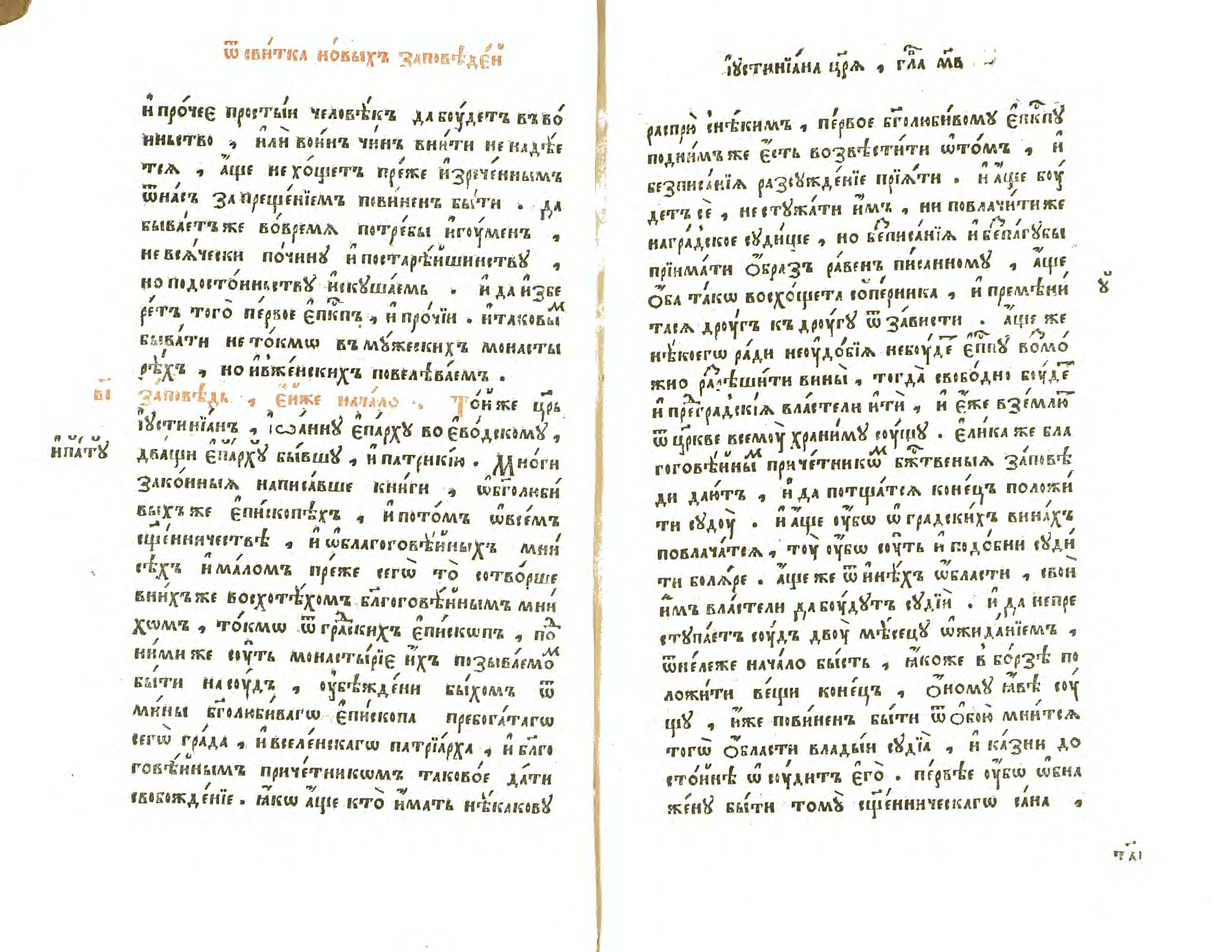 Ѿ сви́тка но́выхъ за́повѣде́й
и҆ про́чее просты́и человѣ́къ да бу́детъ въ во́
иньство , и҆лѝ во́инъ чи́нъ вни́ти не надѣ́е
тся , а҆́ще не хо́щетъ пре́же и҆зрече́ннымъ
ѿна́съ запреще́нїемъ пови́ненъ бы́ти . да
быва́етъ же во́время потре́бы и҆гу́менъ ,
не вся́чески по́чину и҆ постарѣ́йшинству ,
но подосто́инству и҆скуша́емъ . и҆ да и҆збе
ре́тъ того̀ пе́рвое є҆п҃кпъ , и҆ про́чїи . и҆ таковы́м
быва́ти не то́кмѡ въ му́жескихъ монасты
рѣ́хъ , но и҆ в же́нскихъ повелѣва́емъ .
в҃і за́повѣдь , є҆́йже нача́ло . То́йже цр҃ь
і҆устинїа́нъ , і҆ѡа́нну є҆па́рху во є҆во́дскому ,
и҆па́ту
два́щи є҆па́рху бы́вшу , и҆ патри́кїю . Мно́ги
зако́нныя написа́вше кни́ги , ѡ҆ бг҃олюби́
выхъ же є҆пи́скопѣхъ , и҆ пото́мъ ѡ҆ все́мъ
сщ҃е́нничествѣ , и҆ ѡ҆ благоговѣ́йныхъ мни́
сѣхъ и҆ ма́ломъ пре́же сегѡ̀ то̀ сотво́рше
в ни́хъ же восхотѣ́хомъ бл҃гоговѣ́йнымъ мни́
хѡмъ , то́кмѡ ѿ гра́дскихъ є҆пи́скѡпъ , под
ни́ми же су́ть монастырїѐ и҆́хъ позыва́емом
бы́ти на су́дъ , ѹ҆бѣжде́ни бы́хомъ ѿ
ми́ны бг҃олюби́вагѡ є҆пи́скопа пребога́тагѡ
сегѡ̀ гра́да , и҆ вселе́нскагѡ патрїа́рха , и҆ бл҃го
говѣ́йнымъ при́четникѡмъ таково́е да́ти
свобожде́нїе . ꙗ҆́кѡ а҆́ще кто̀ и҆́мать нѣ́какову
і҆устинїа́на цр҃я , гла҃ м҃в
распрю̀ с нѣ́кимъ , пе́рвое бг҃олюби́вому є҆п҃кпу
под ни́мъ же є҆́сть возвѣсти́ти ѡ҆ то́мъ , и҆
без писа́нїя разсужде́нїе прїя́ти . и҆ а҆́ще бу́
детъ сѐ , не стужа́ти и҆́мъ , ни повлачи́ти же
на гра́дское суди́ще , но бе́писа́нїя и҆ бе́пагубы
прїима́ти ѻ҆́бразъ ра́венъ пи́санному , а҆́ще
ѻ҆́ба та́кѡ восхо́щета сопе́рника , и҆ премѣни́
у҆
тася дру́гъ къ дру́гу ѿ за́висти . а҆́ще же
нѣ́коегѡ ра́ди неудо́бїя не бу́де є҆п҃пу во́мо
жно разрѣши́ти вины̀ , тогда̀ свобо́дно бу́де
и҆ прегра́дскїя власте́ли и҆тѝ , и҆ є҆́же в зе́млю
ѿ цр҃кве всему́ храни́му су́щу . є҆ли́ка же бла
гоговѣ́йным при́четником бж҃твеныя за́повѣ
ди даю́тъ , и҆ да потща́тся коне́цъ положи́
ти суду̀ . и҆ а҆́ще у҆́бѡ ѡ҆ гра́дскихъ вина́хъ
повлача́тся , ту̀ у҆́бѡ су́ть и҆ подо́бни суди́
ти боля́ре . а҆́ще же ѿ и҆нѣ́хъ ѡ҆́бласти , свои́
и҆́мъ власте́ли да бу́дутъ судїи̑ . и҆ да не пре
ступа́етъ су́дъ двоу̀ мѣ́сецу ѡ҆жида́нїемъ ,
ѿне́леже нача́ло бы́сть , ꙗ҆́коже в бо́рзѣ по
ложи́ти ве́щи коне́цъ , ѻ҆́ному ꙗ҆́вѣ су́
щу , и҆́же пови́ненъ бы́ти ѿ ѻ҆бою̀ мни́тся
тогѡ̀ ѻ҆́бласти влады́и судїа̀ , и҆ ка́зни до
сто́йнѣ ѡ҆су́дитъ є҆го̀ . пе́рвѣе у҆́бѡ ѡ҆бна
же́ну бы́ти тому̀ сщ҃е́нническагѡ са́на ,